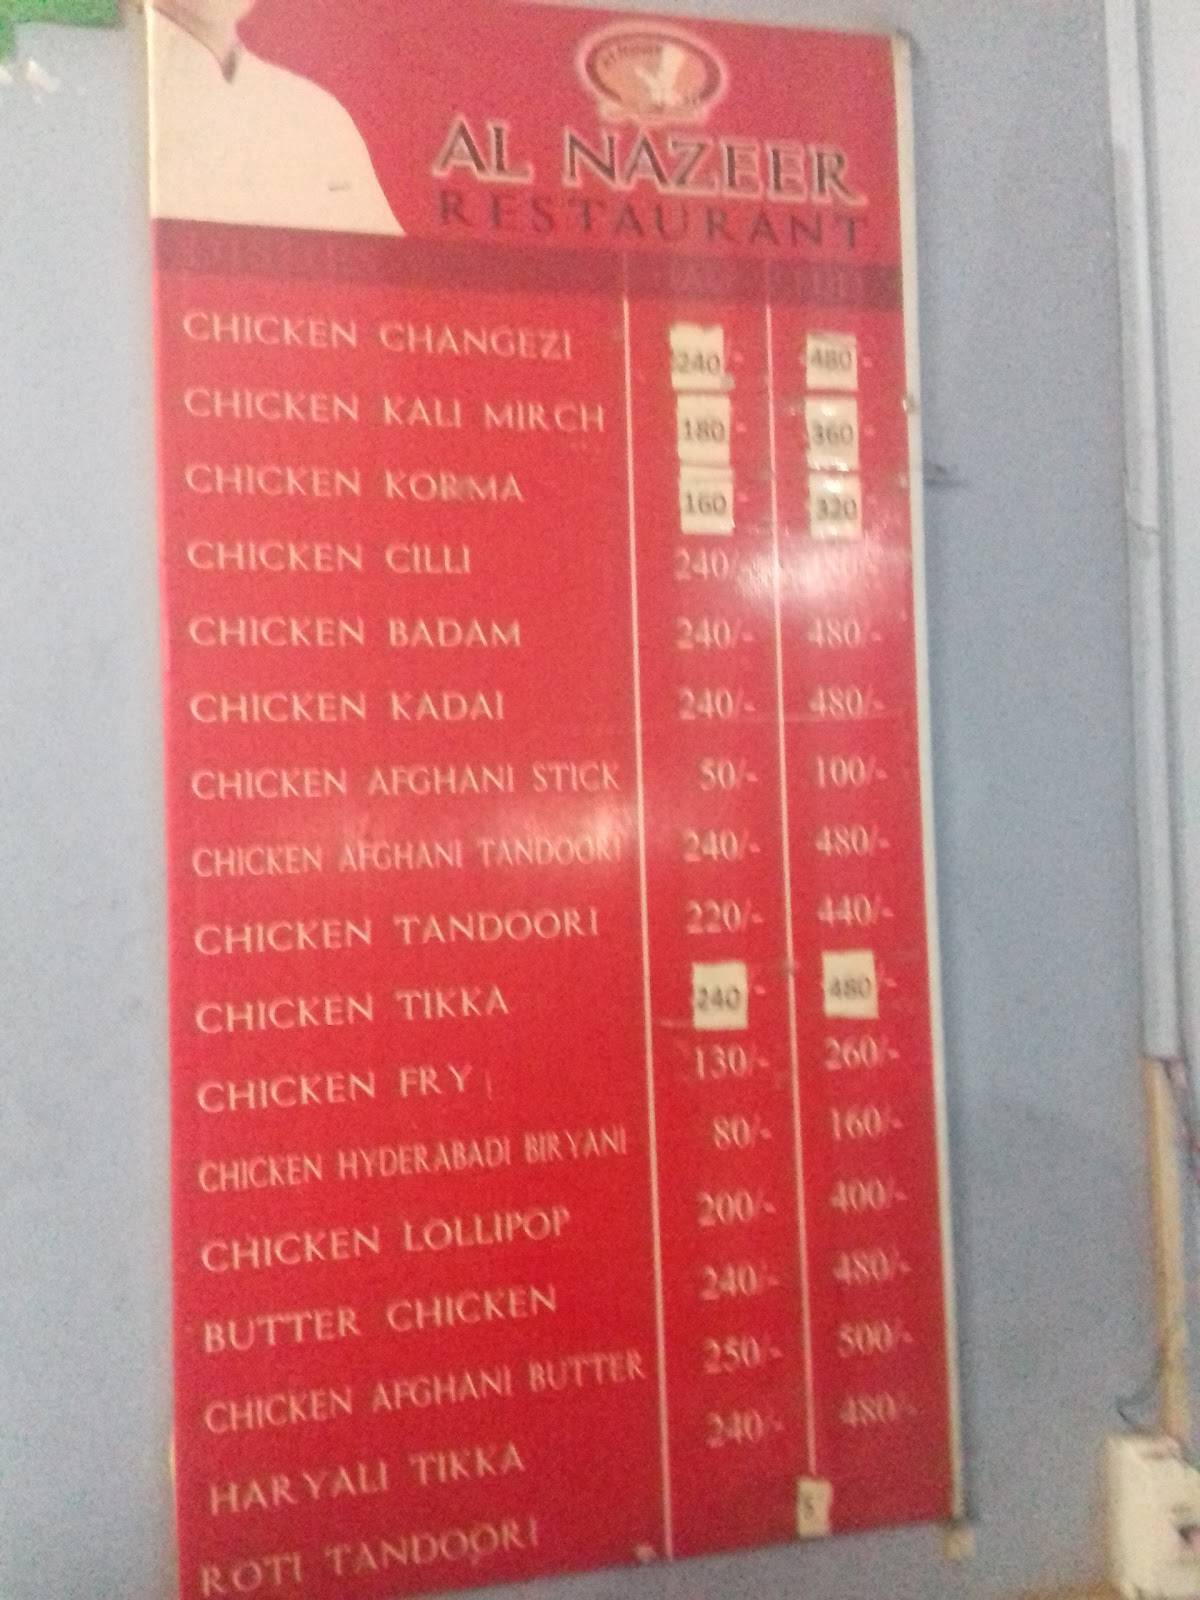 AL NAZEER
RESTAURANT
CHICKEN CHANGEZI 240/- 480/-
CHICKEN KALI MIRCH 180/- 360/-
CHICKEN KORMA 160/- 320
CHICKEN CILLI 240/-
CHICKEN BADAM 240/- 480/-
CHICKEN KADAI 240/- 480/-
CHICKEN AFGHANI STICK 50/- 100/-
CHICKEN AFGHANI TANDOORI 240/- 480/-
CHICKEN TANDOORI 220/- 440/-
CHICKEN TIKKA 240/- 480/-
CHICKEN FRY 130/- 260/-
CHICKEN HYDERABADI BIRYANI 80/- 160/-
CHICKEN LOLLIPOP 200/- 400/-
BUTTER CHICKEN 240/- 480/-
CHICKEN AFGHANI BUTTER 250/- 500/-
HARYALI TIKKA 240/- 480/-
ROTI TANDOORI 5